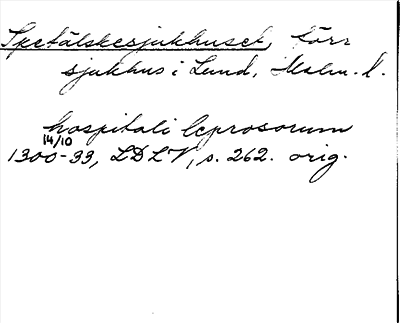 Spetälskesjukhuset, förr
sjukhus i Lund, Malm. l.
hospitali leprosorum
14/10
1300-33, LDLV, s. 262. orig.